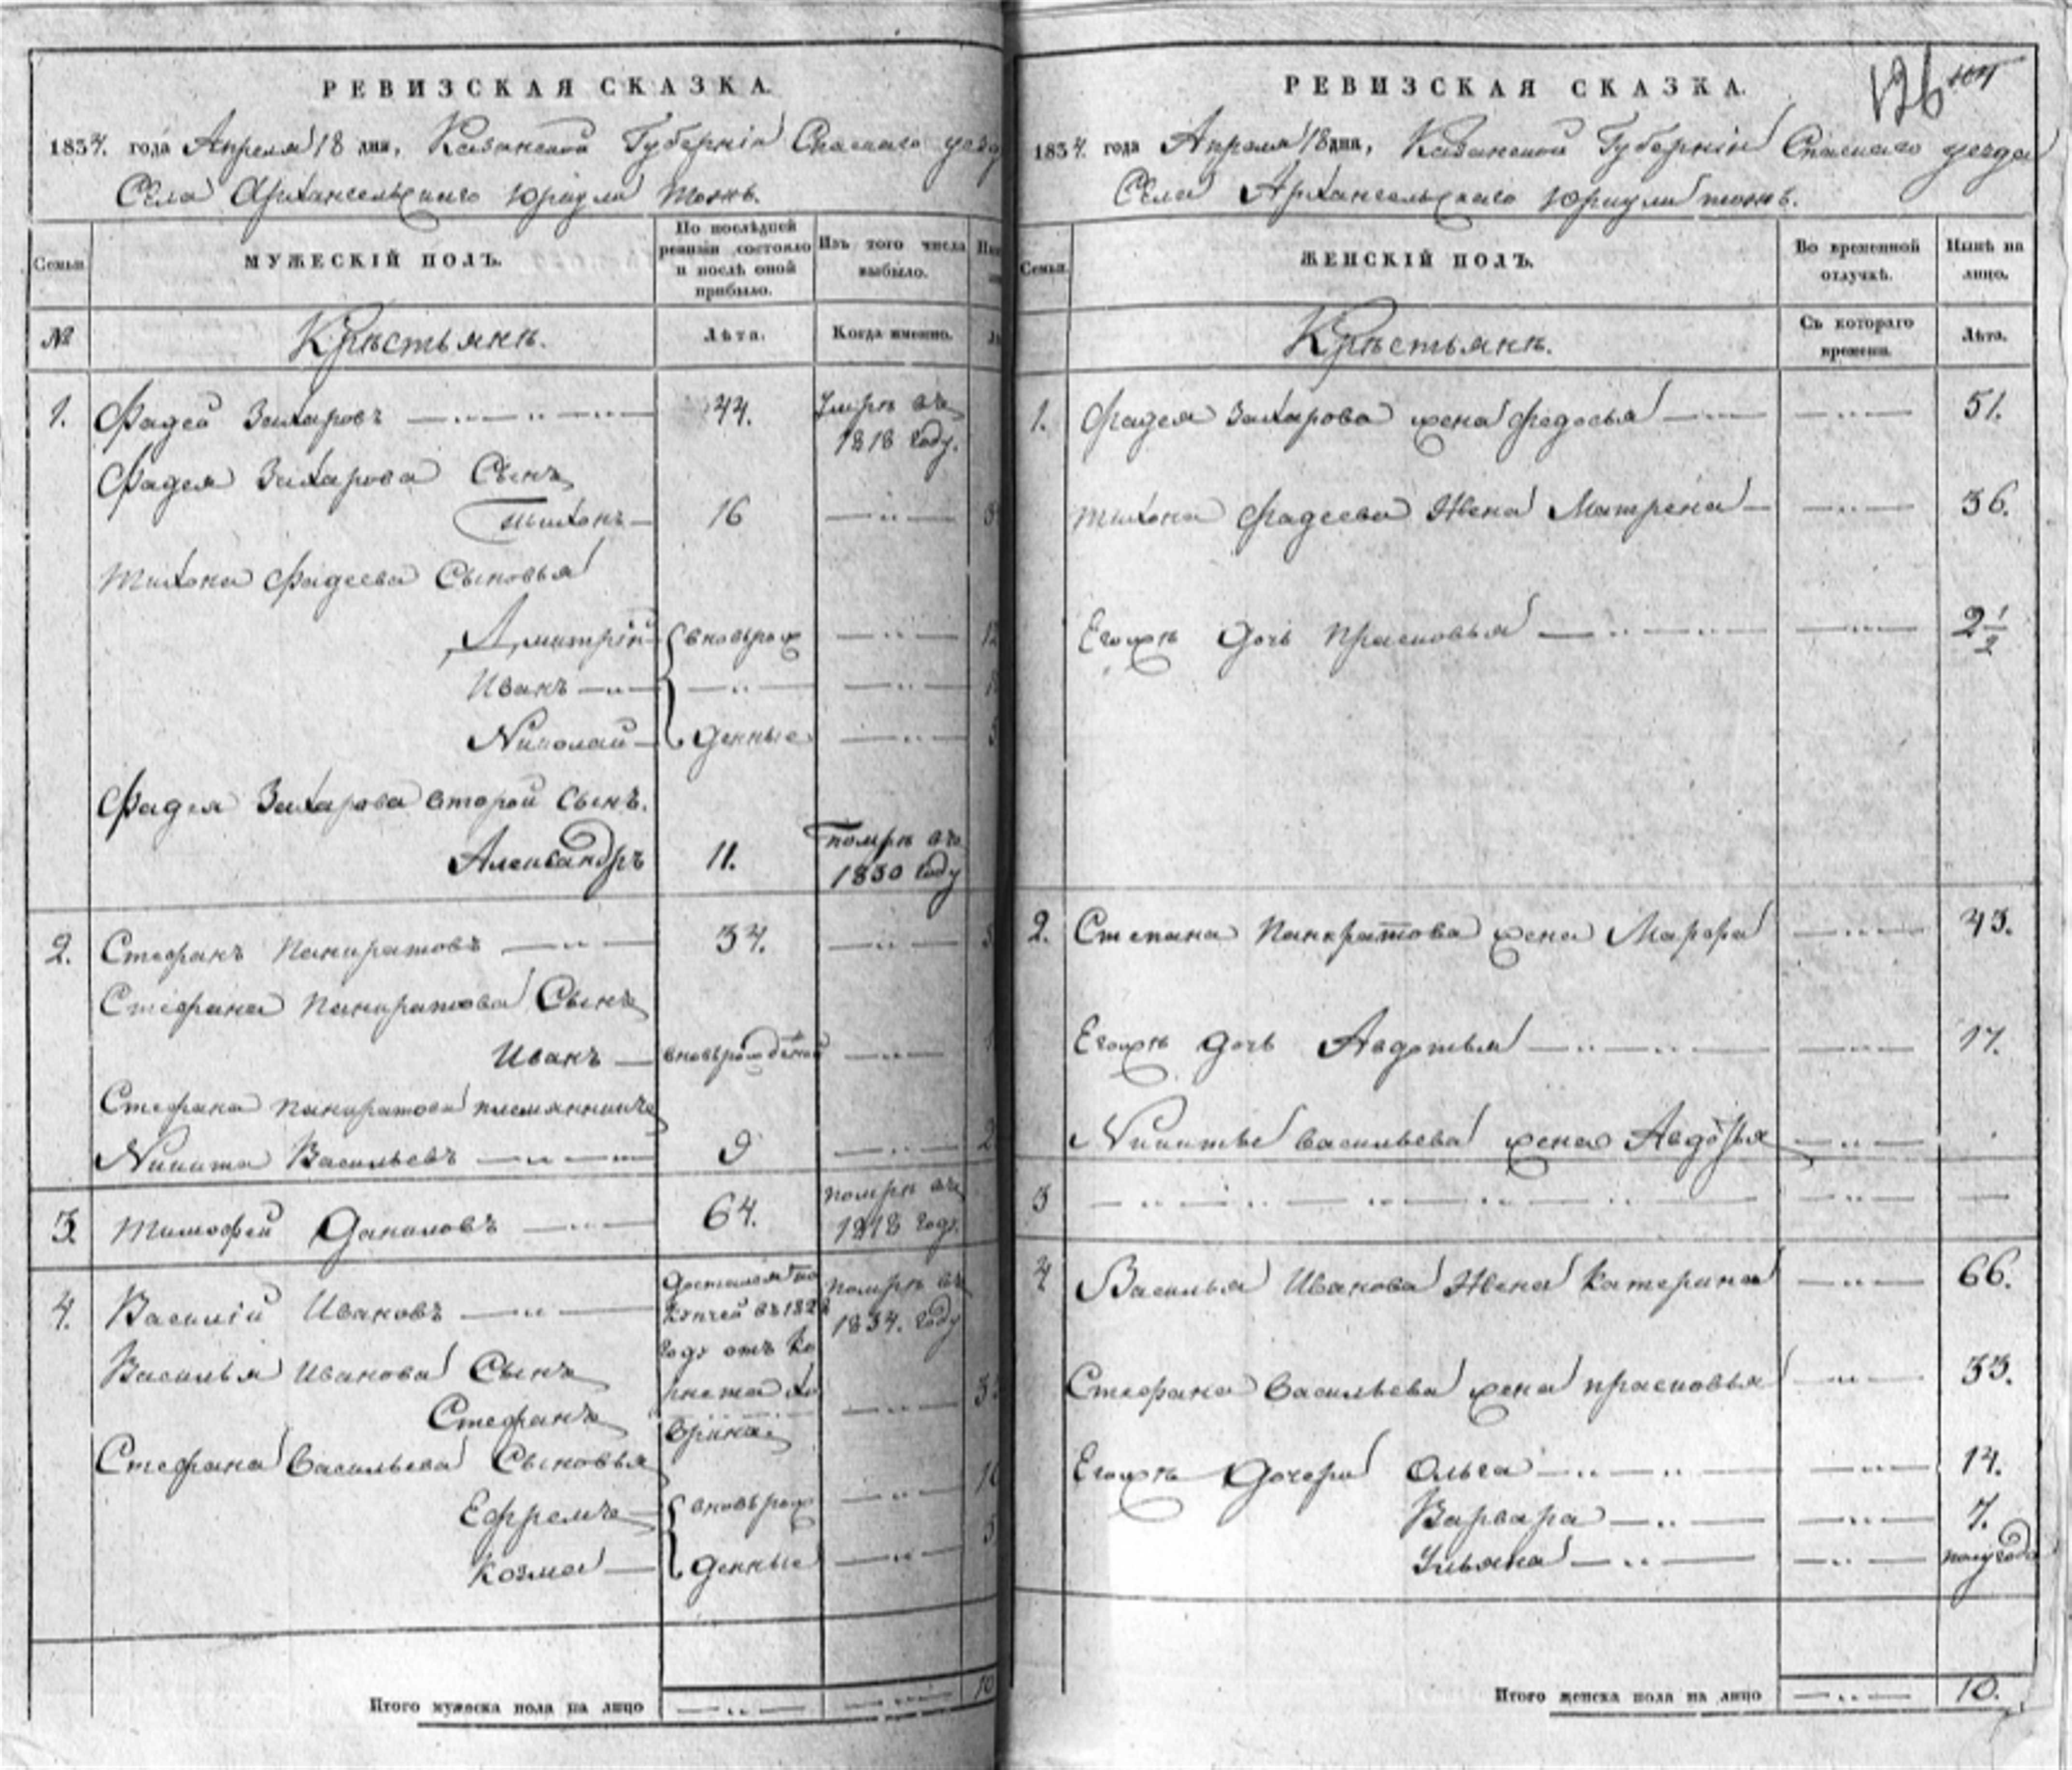 РЕВИЗСКАЯ СКАЗКА.
1834. года Апреля 18 дня, Казанской Губерніи Спаскаго уезд
Села Архангельскаго Юркули тожъ.
Семьи
МУЖЕСКІЙ ПОЛЪ.
По послѣдней ревизіи состояло и послѣ оной прибыло.
Изъ того числа выбыло.
№
Крѣстьянѣ.
Лѣта.
Когда именно.
1. Фадей Захаровъ 44. Умрѣ въ 1818 году.
Фадея Захарова Сынъ
Тихонъ 16
Тихона Фадеева Сыновья
Дмитрій вновьрож
Иванъ
Николай денные
Фадея Захарова второй Сынъ.
Александръ 11. помрѣ въ 1830 году
2. Стефанъ Панкратовъ 34.
Стефана Панкратова Сынъ
Иванъ вновьрожденой
Стефана Панкратова племянникъ
Никита Васильевъ 9
3. Тимофей Даниловъ 64. помрѣ въ 1818 году.
4. Василій Ивановъ помрѣ въ 1834. году
Василья Иванова Сынъ
Стефанъ
Стефана Васильева Сыновья
Ефремъ вновьрож
Козма денные
Итого мужеска пола на лицо 10
РЕВИЗСКАЯ СКАЗКА.
126
1834. года Апреля 18 дня, Казанской Губерніи Спаскаго уезда
Села Архангельскаго Юркули тожъ.
Семьи.
ЖЕНСКІЙ ПОЛЪ.
Во временной отлучкѣ.
Нынѣ на лицо.
Крѣстьянѣ.
Съ котораго времени.
Лѣта.
1. Фадея Захарова жена Федосья 51.
Тихона Фадеева Жена Матрена 36.
Егожѣ дочь Прасковья 2 1/2
2. Степана Панкратова жена Марфа 43.
Егожѣ дочь Авдотья 17.
Никиты Васильева жена
3
4 Василья Иванова Жена Катерина 66.
Стефана Васильева жена Прасковья 33.
Егожѣ Дочери Ольга 14.
Варвара 7.
Ульяна полугода
Итого женска пола на лицо 10.